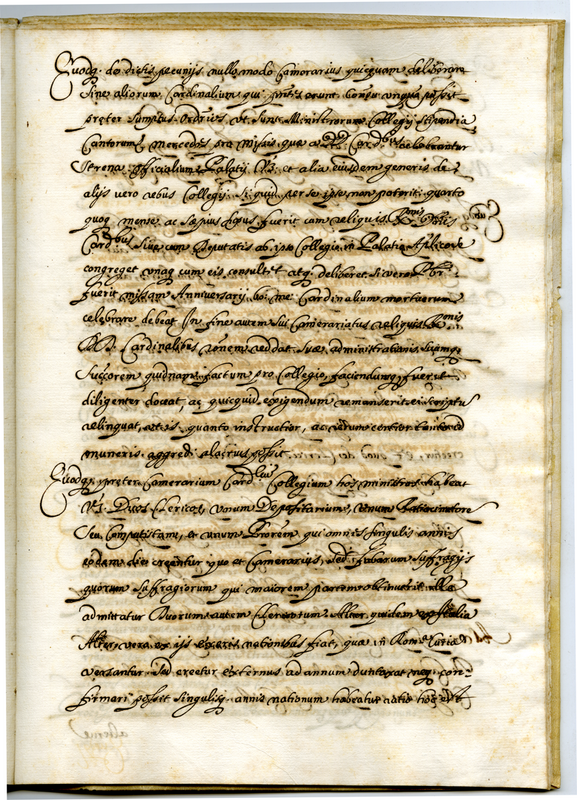 Quodq. de dictis pecunijs nullo modo Camerarius quicquam deliberare
sine aliorum Cardinalium qui erunt possit
preter sumptus ordrios ut sunt Ministrorum Collegij stipendia
Cantorum mercedes pro missis, quæ a R. Card. celebrantur
Strena officialium Palatij et alia eiusdem generis de
alijs vero rebus Collegij, si quid per se ipse non poterit, quarto
quoq mense, ac sæpius si opus fuerit cum reliquis
Card.bus sive cum Deputatis ab ipso Collegio in Palatio Aplico se
congreget unaq cum eis consultet atq. deliberet. si vero
fuerit missam Anniversarij bo: me: Cardinalium mortuorum
celebrare debeat In fine autem sui Camerariatus reliquis
Cardinalibus rõnem reddat suæ administrationis, suumq
Succorem quidnam factum pro Collegio, faciendumq fuerit
diligenter doceat, ac quicquid exigendum remanserit ei scriptũ
relinquat, ut is quanto instructior, ac rerum certior tanto ad
muneris aggred. alacrius possit
Quodq. preter Camerarium Card.lium Collegium hos ministros habeat
Duos Clericos, unum Depositarium, unum Ratiocinatorẽ
seu Computistam, et unum Prorem, qui omnes singulis annis
eodem die creentur quo et Camerarius, sed fabarum suffragijs
quorum suffragiorum qui maiorem partem obtinuerit ille
admittatur Duorum autem Clericorum Alter quidem ex Italia
Alter vero ex ijs exteris nationibus fiat, quæ in Rom.a Curia
versantur sed creetur externus ad annum duntaxat neq. con-
firmari possit singulisq. annis nationum habeatur ratio hoc est